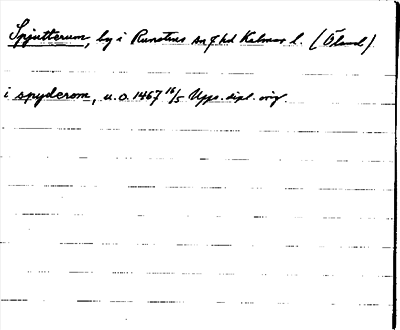 Spjutterum, by i Runstens sn, f hd Kalmar l. (Öland)
i spyderom, u.o. 1467 16/5 Upps. dipl. orig.